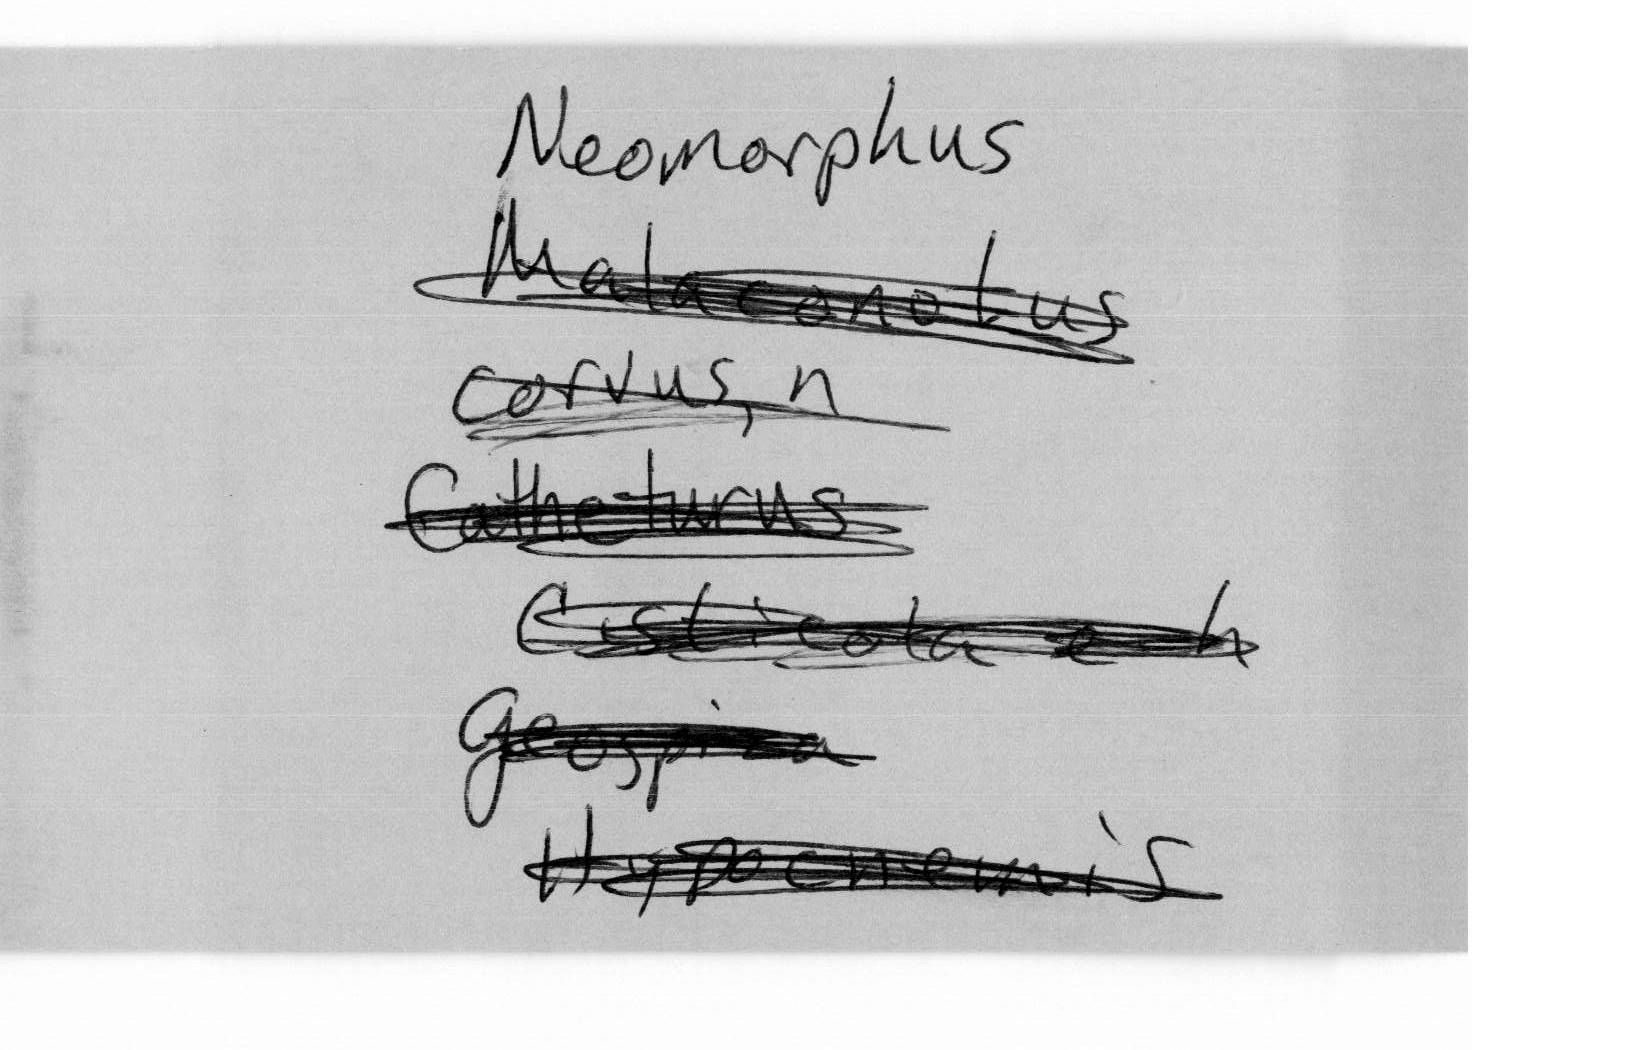 Neomorphus
Malaconotus
Corvus, n
Catheturus
Cisticola e h
Geospiza
Hypocnemis